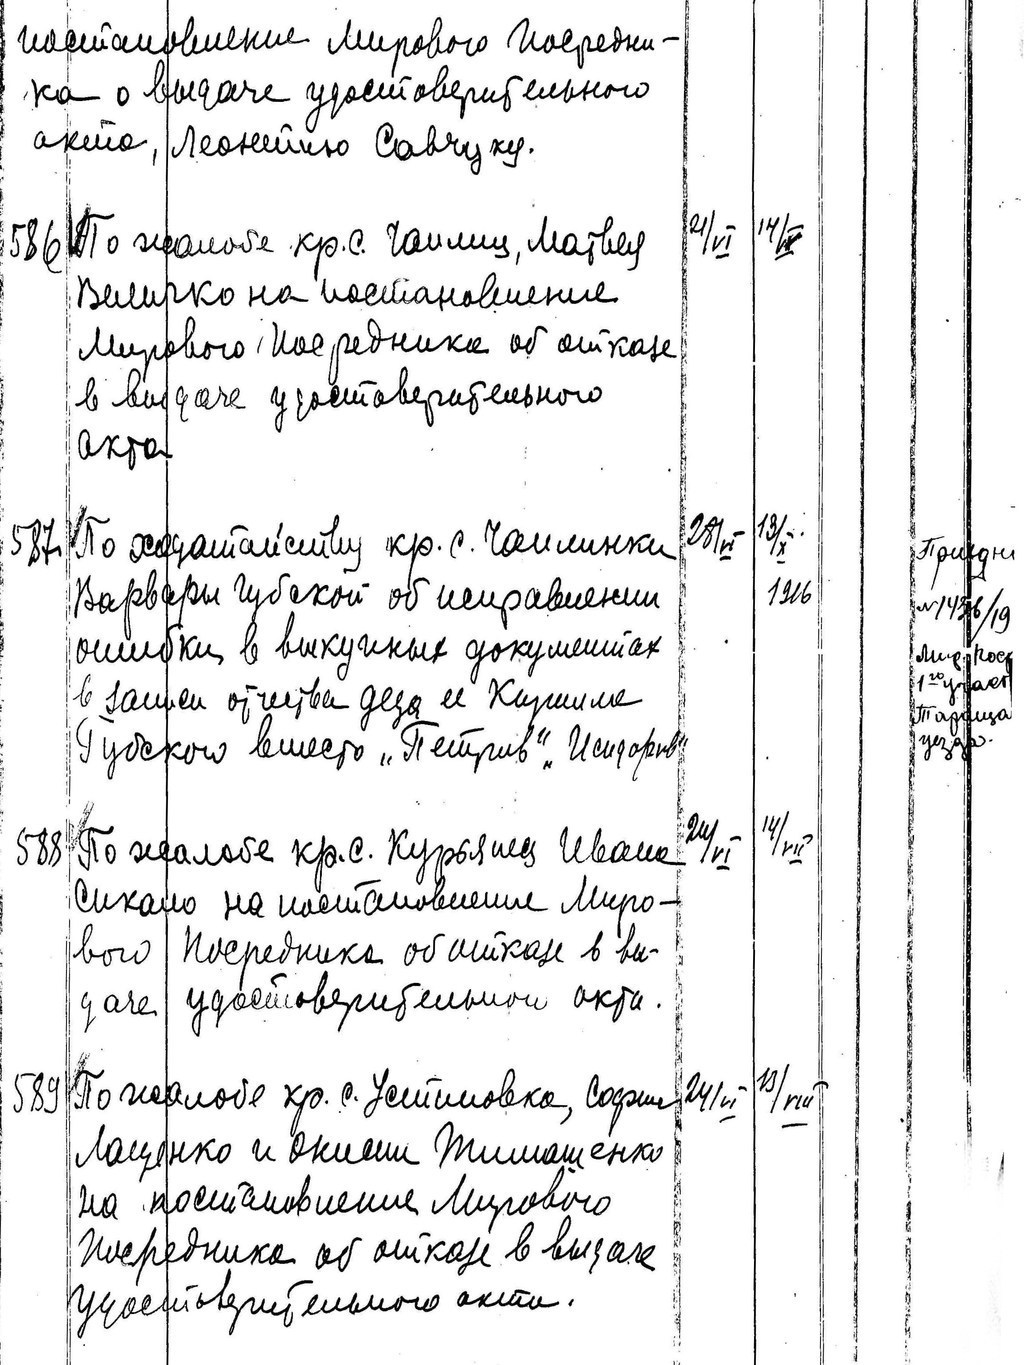 постановление Мирового Посредни-
ка о выдаче удостоверительного
акта, Леонтию Савчуку.
586 По жалобе кр. с. Чаплиц, Матвея 21/VI 14/
Величко на постановление
Мирового Посредника об отказе
в выдаче удостоверительного
акта
587. По ходатайству кр. с. Чаплинки 28/VI 13/X
Варвары Губской об исправлении 1916
ошибки в выкупных документах
в записи отчества деда ее Кирилла
Губского вместо „Петрив" „Исидорив"
№1436/19
Мир. Поср
1го участ
Тараща
уезда.
588 По жалобе кр. с. Курьянец Ивана 24/VI 14/VII
Сикало на постановление Миро-
вого Посредника об отказе в вы-
даче удостоверительного акта.
589 По жалобе кр. с. Устимовка, Софии 24/VI 13/VIII
Лащенко и Анисии Тимошенко
на постановление Мирового
Посредника об отказе в выдаче
удостоверительного акта.